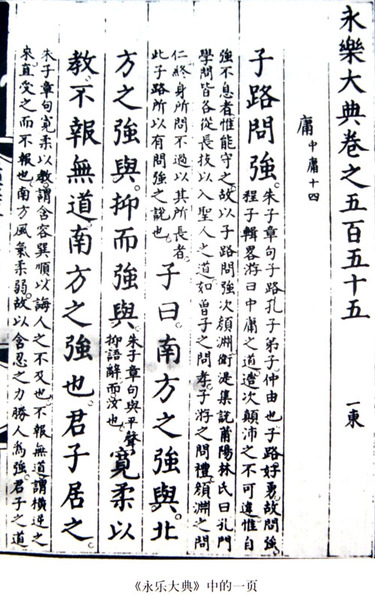 永樂大典卷之五百五十五 一東
庸 中庸十四
子路問強。朱子章句子路孔子弟子仲由也子路好勇故問強。
程子輯畧游曰中庸之道造次顛沛之不可違惟自
強不息者惟能守之故以子路問強次顔淵衛湜集説莆陽林氏曰孔門
學問皆各從長技以入聖人之道如曾子之問孝子游之問禮顔淵之問
仁終身所問不過以其所長者
此子路所以有問強之説也
子曰南方之強與。北
方之強與。抑而強與。朱子章句與平聲
抑語辭而汝也
寬柔以
教。不報無道。南方之強也。君子居之。
朱子章句寬柔以教。謂含容巽順以誨人之不及也。不報無道謂橫逆之
來直受之而不報也南方風氣柔弱。故以含忍之力勝人為強君子之道
《永乐大典》中的一页